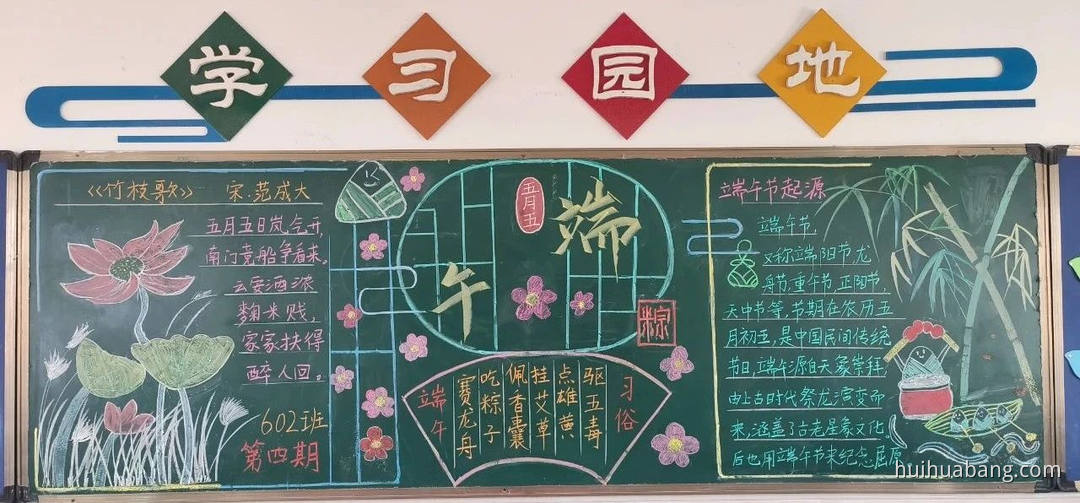 学习园地
《竹枝歌》 宋·范成大
五月五日岚气开,
南门竞船争看来。
云安酒浓
麴米贱,
家家扶得
醉人回。
602班
第四期
五月五
端
午
粽
端午
赛龙舟
吃粽子
佩香囊
挂艾草
点雄黄
驱五毒
习俗
端午节起源
端午节,
又称端阳节龙
舟节,重午节,正阳节,
天中节等,节期在农历五
月初五,是中国民间传统
节日,端午源自天象崇拜,
由上古时代祭龙演变而
来,涵盖了古老星象文化。
后也用端午节来纪念屈原
huihuabang.com